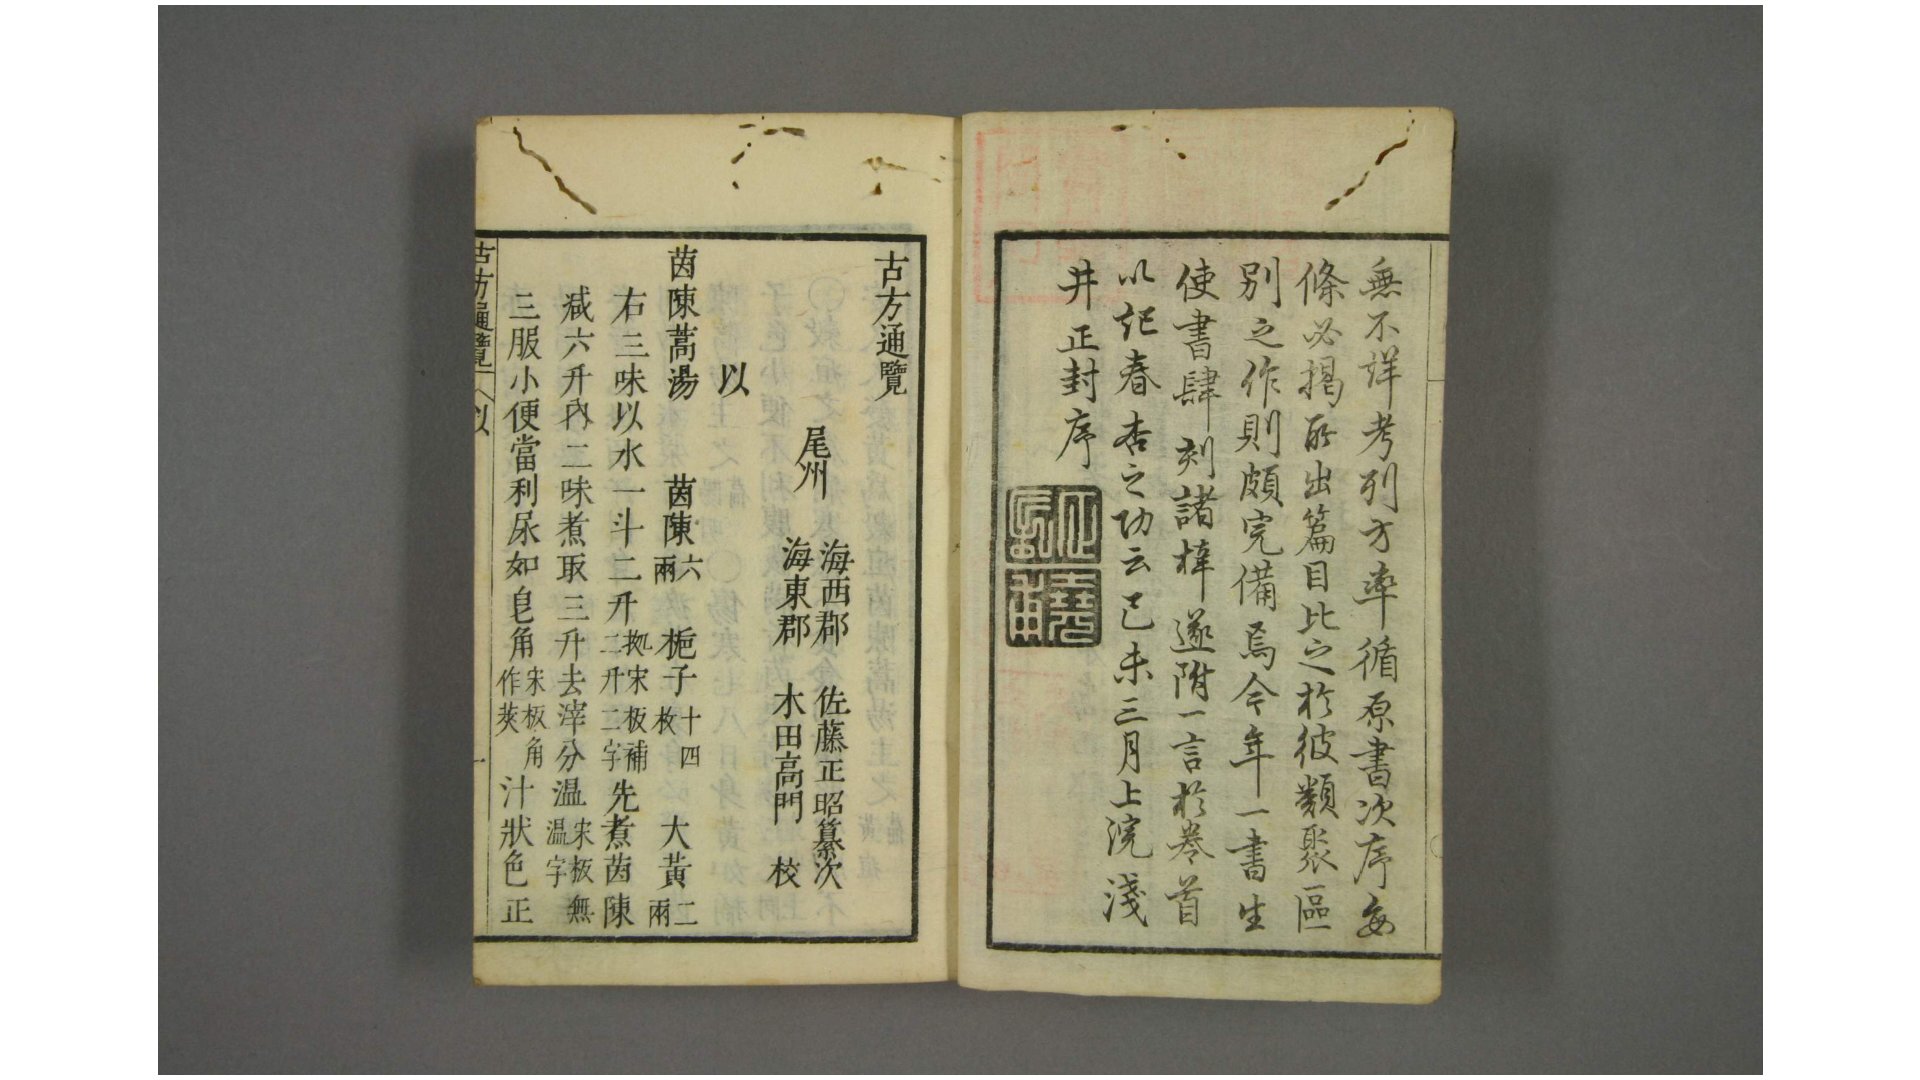 無不詳考列方率循原書次序每
條必揭所出篇目比之於彼類聚區
別之作則頗完備焉今年一書生
使書肆刻諸梓遂附一言於卷首
以記春杏之功云己未三月上浣淺
井正封序
古方通覽
尾州
海西郡 佐藤正昭纂次
海東郡 木田高門 校
以
茵陳蒿湯 茵陳六兩 梔子十四枚 大黃二兩
右三味以水一斗二升拠宋板補二升二字先煮茵陳
減六升內二味煮取三升去滓分温宋板無温字
三服小便當利尿如皂角宋板角作莢汁狀色正
古方通覽 以 一